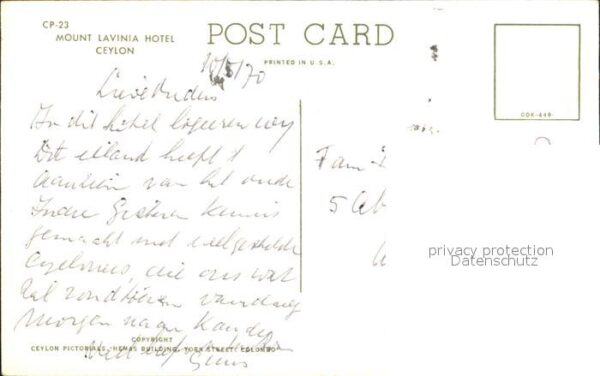 CP-23
MOUNT LAVINIA HOTEL
CEYLON
POST CARD
PRINTED IN U.S.A.
10/5/70
Lieve
In dit hotel logeeren wij
Dit eiland heeft 't
aanzien van het oude
Indie Gisteren kennis
gemaakt met
die ons wat
zal vandaag
Morgen naar Kandy
Fam
5
COK-449
privacy protection
Datenschutz
COPYRIGHT
CEYLON PICTORIALS, HEMAS BUILDING, YORK STREET, COLOMBO